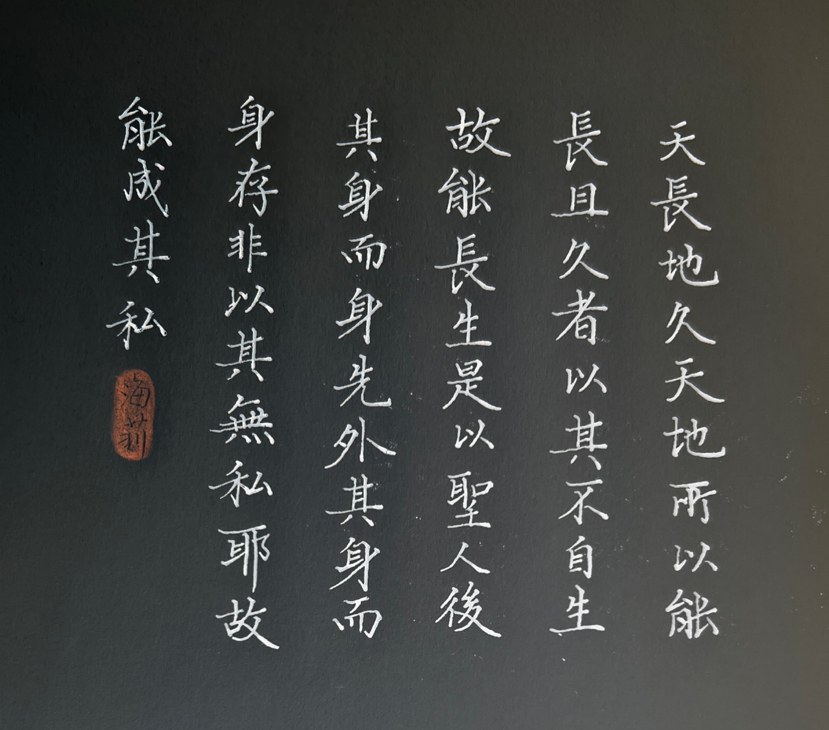 天長地久天地所以能
長且久者以其不自生
故能長生是以聖人後
其身而身先外其身而
身存非以其無私耶故
能成其私
海莉